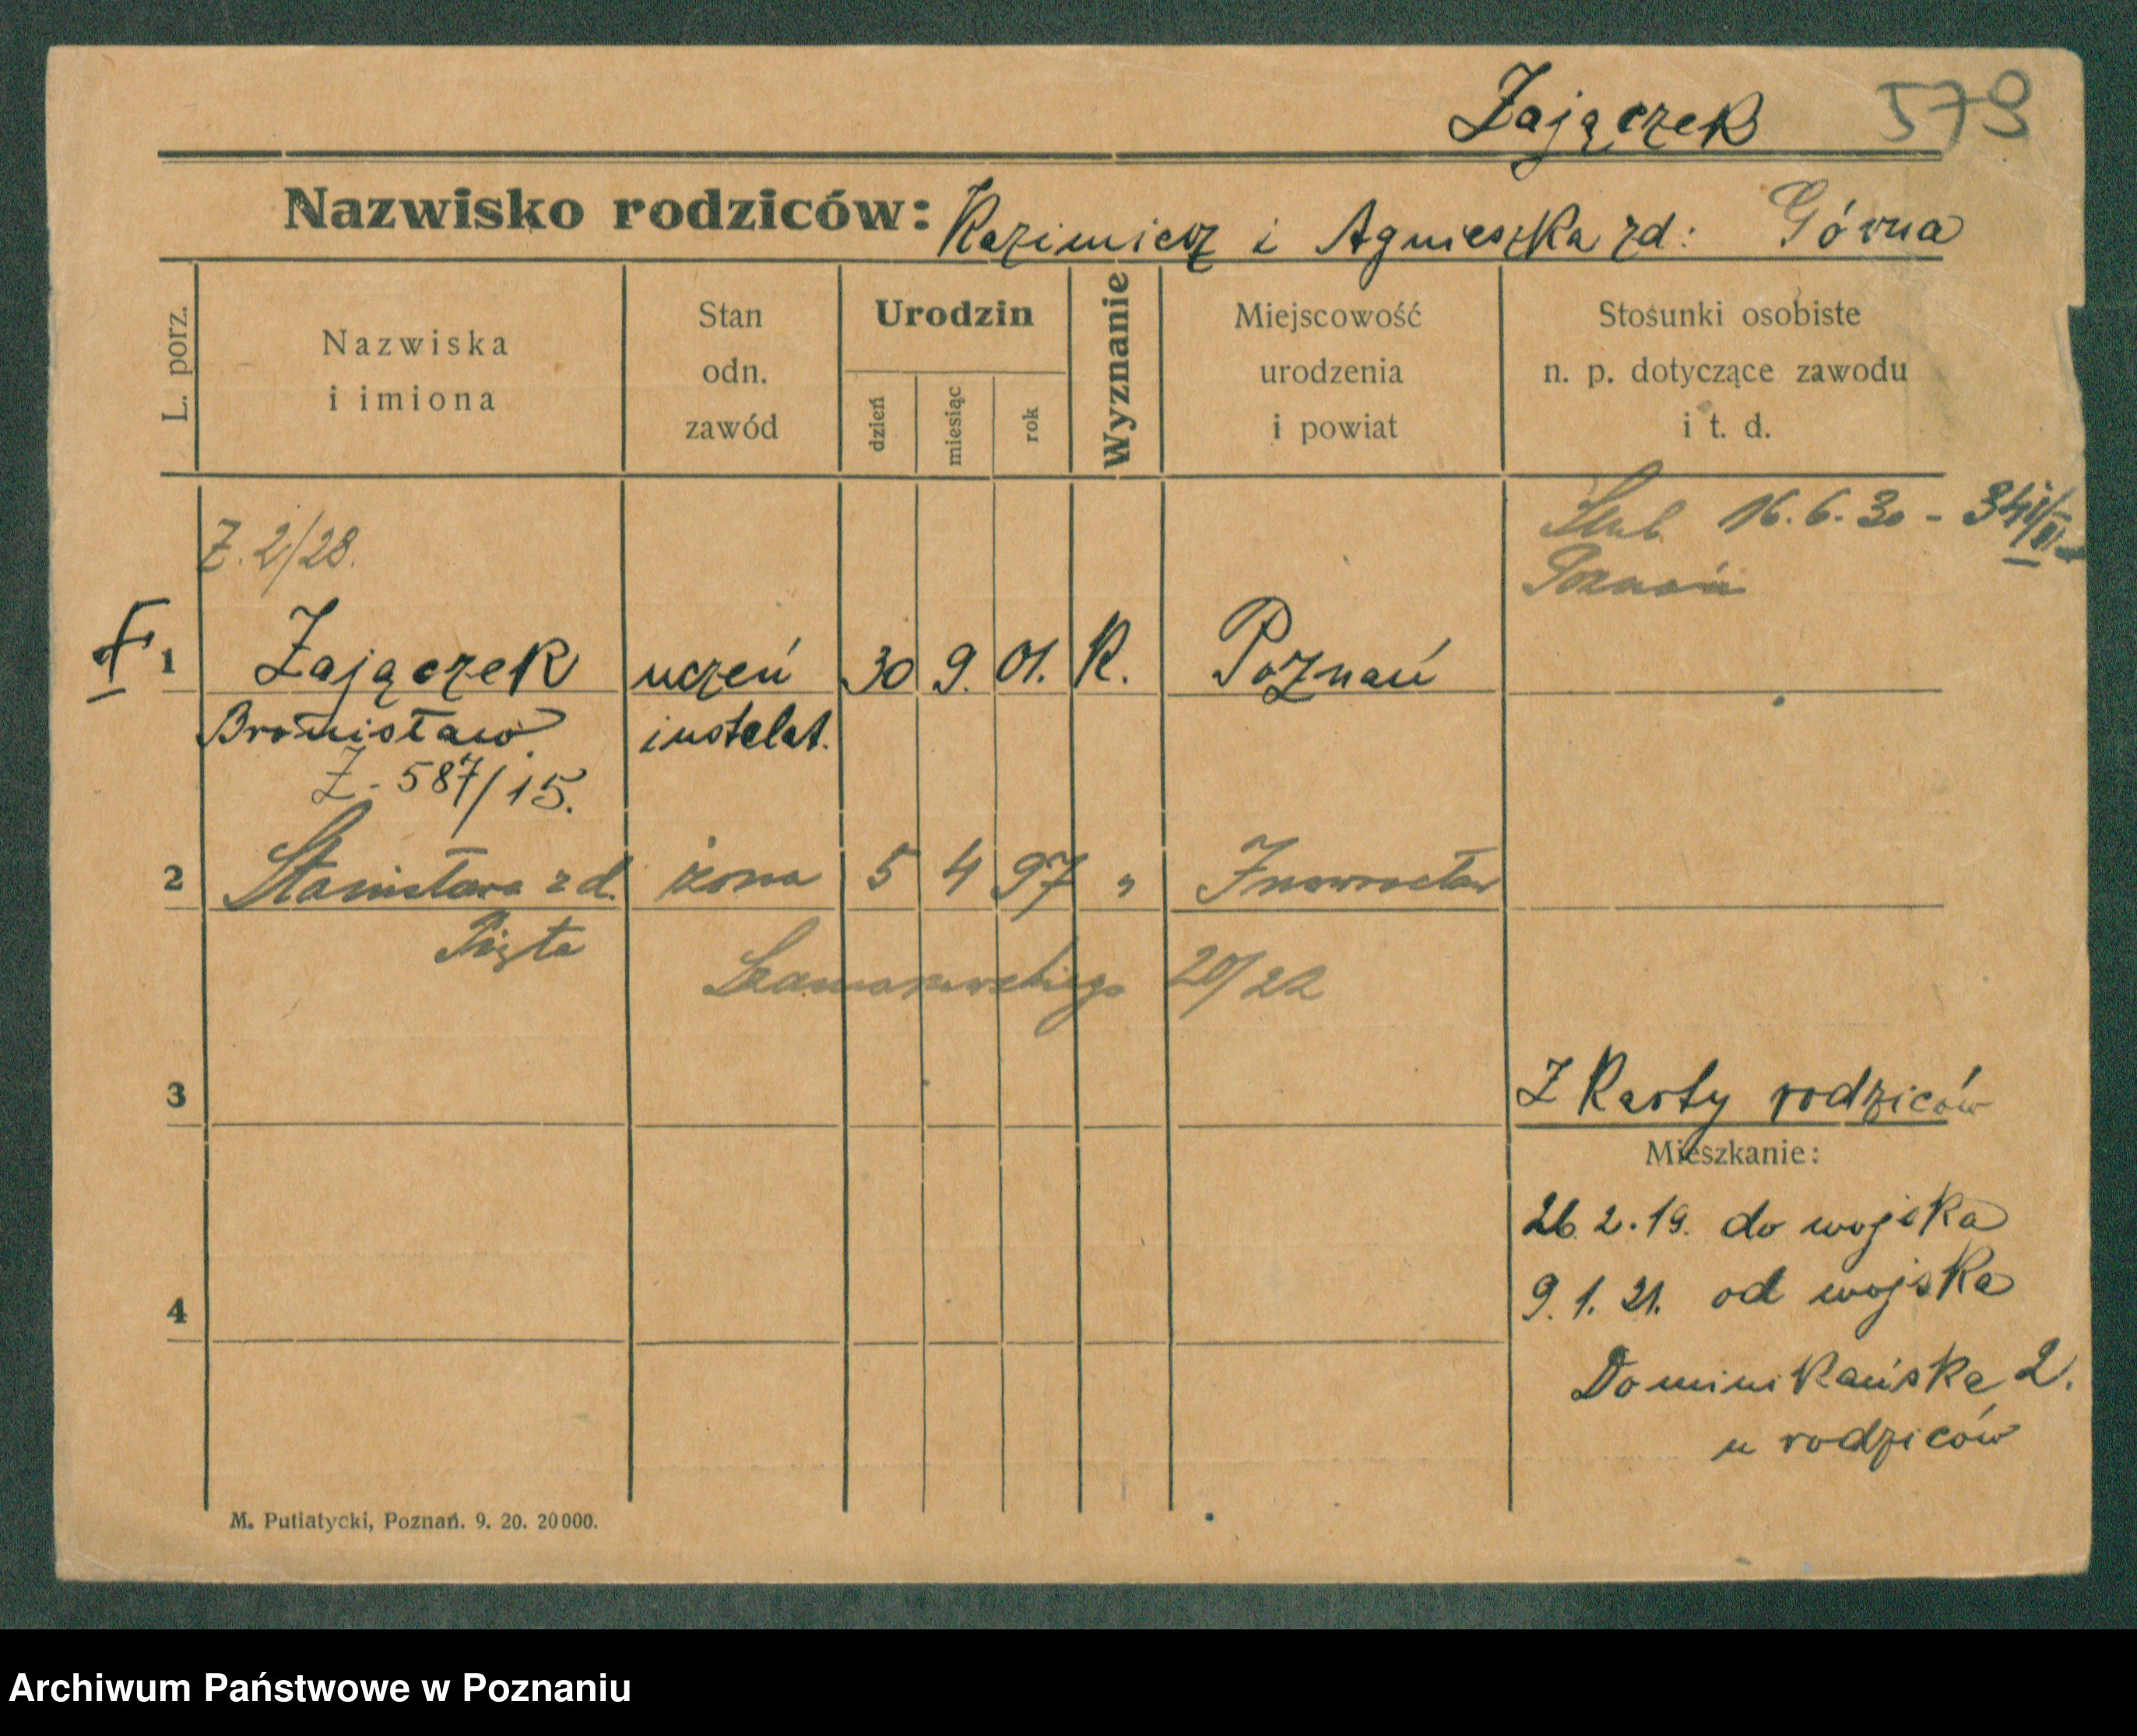 Zajączek 579
Nazwisko rodziców: Kazimierz i Agnieszka zd: Górna
L. porz.
Nazwiska
i imiona
Stan
odn.
zawód
Urodzin
dzień
miesiąc
rok
Wyznanie
Miejscowość
urodzenia
i powiat
Stosunki osobiste
n. p. dotyczące zawodu
i t. d.
Z. 2/28.
Ślub 16.6.30 -
Poznań
1 Zajączek uczeń 30 9. 01. K. Poznań
Bronisław instalat.
Z. 587/15.
2 Stanisława z d. żona 5 4 97 " Inowrocław
Pięta
Szamarzewskiego 20/22
3
Z Karty rodziców
Mieszkanie:
26.2.19. do wojska
9.1.21. od wojska
4
Dominikańska 2.
u rodziców
M. Putiatycki, Poznań. 9. 20. 20000.
Archiwum Państwowe w Poznaniu